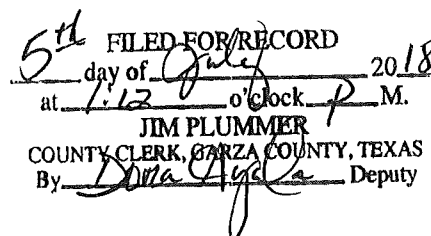 FILED FOR RECORD
5th day of July 2018
at 1:12 o'clock P M.
JIM PLUMMER
COUNTY CLERK, GARZA COUNTY, TEXAS
By Dona Ayala Deputy